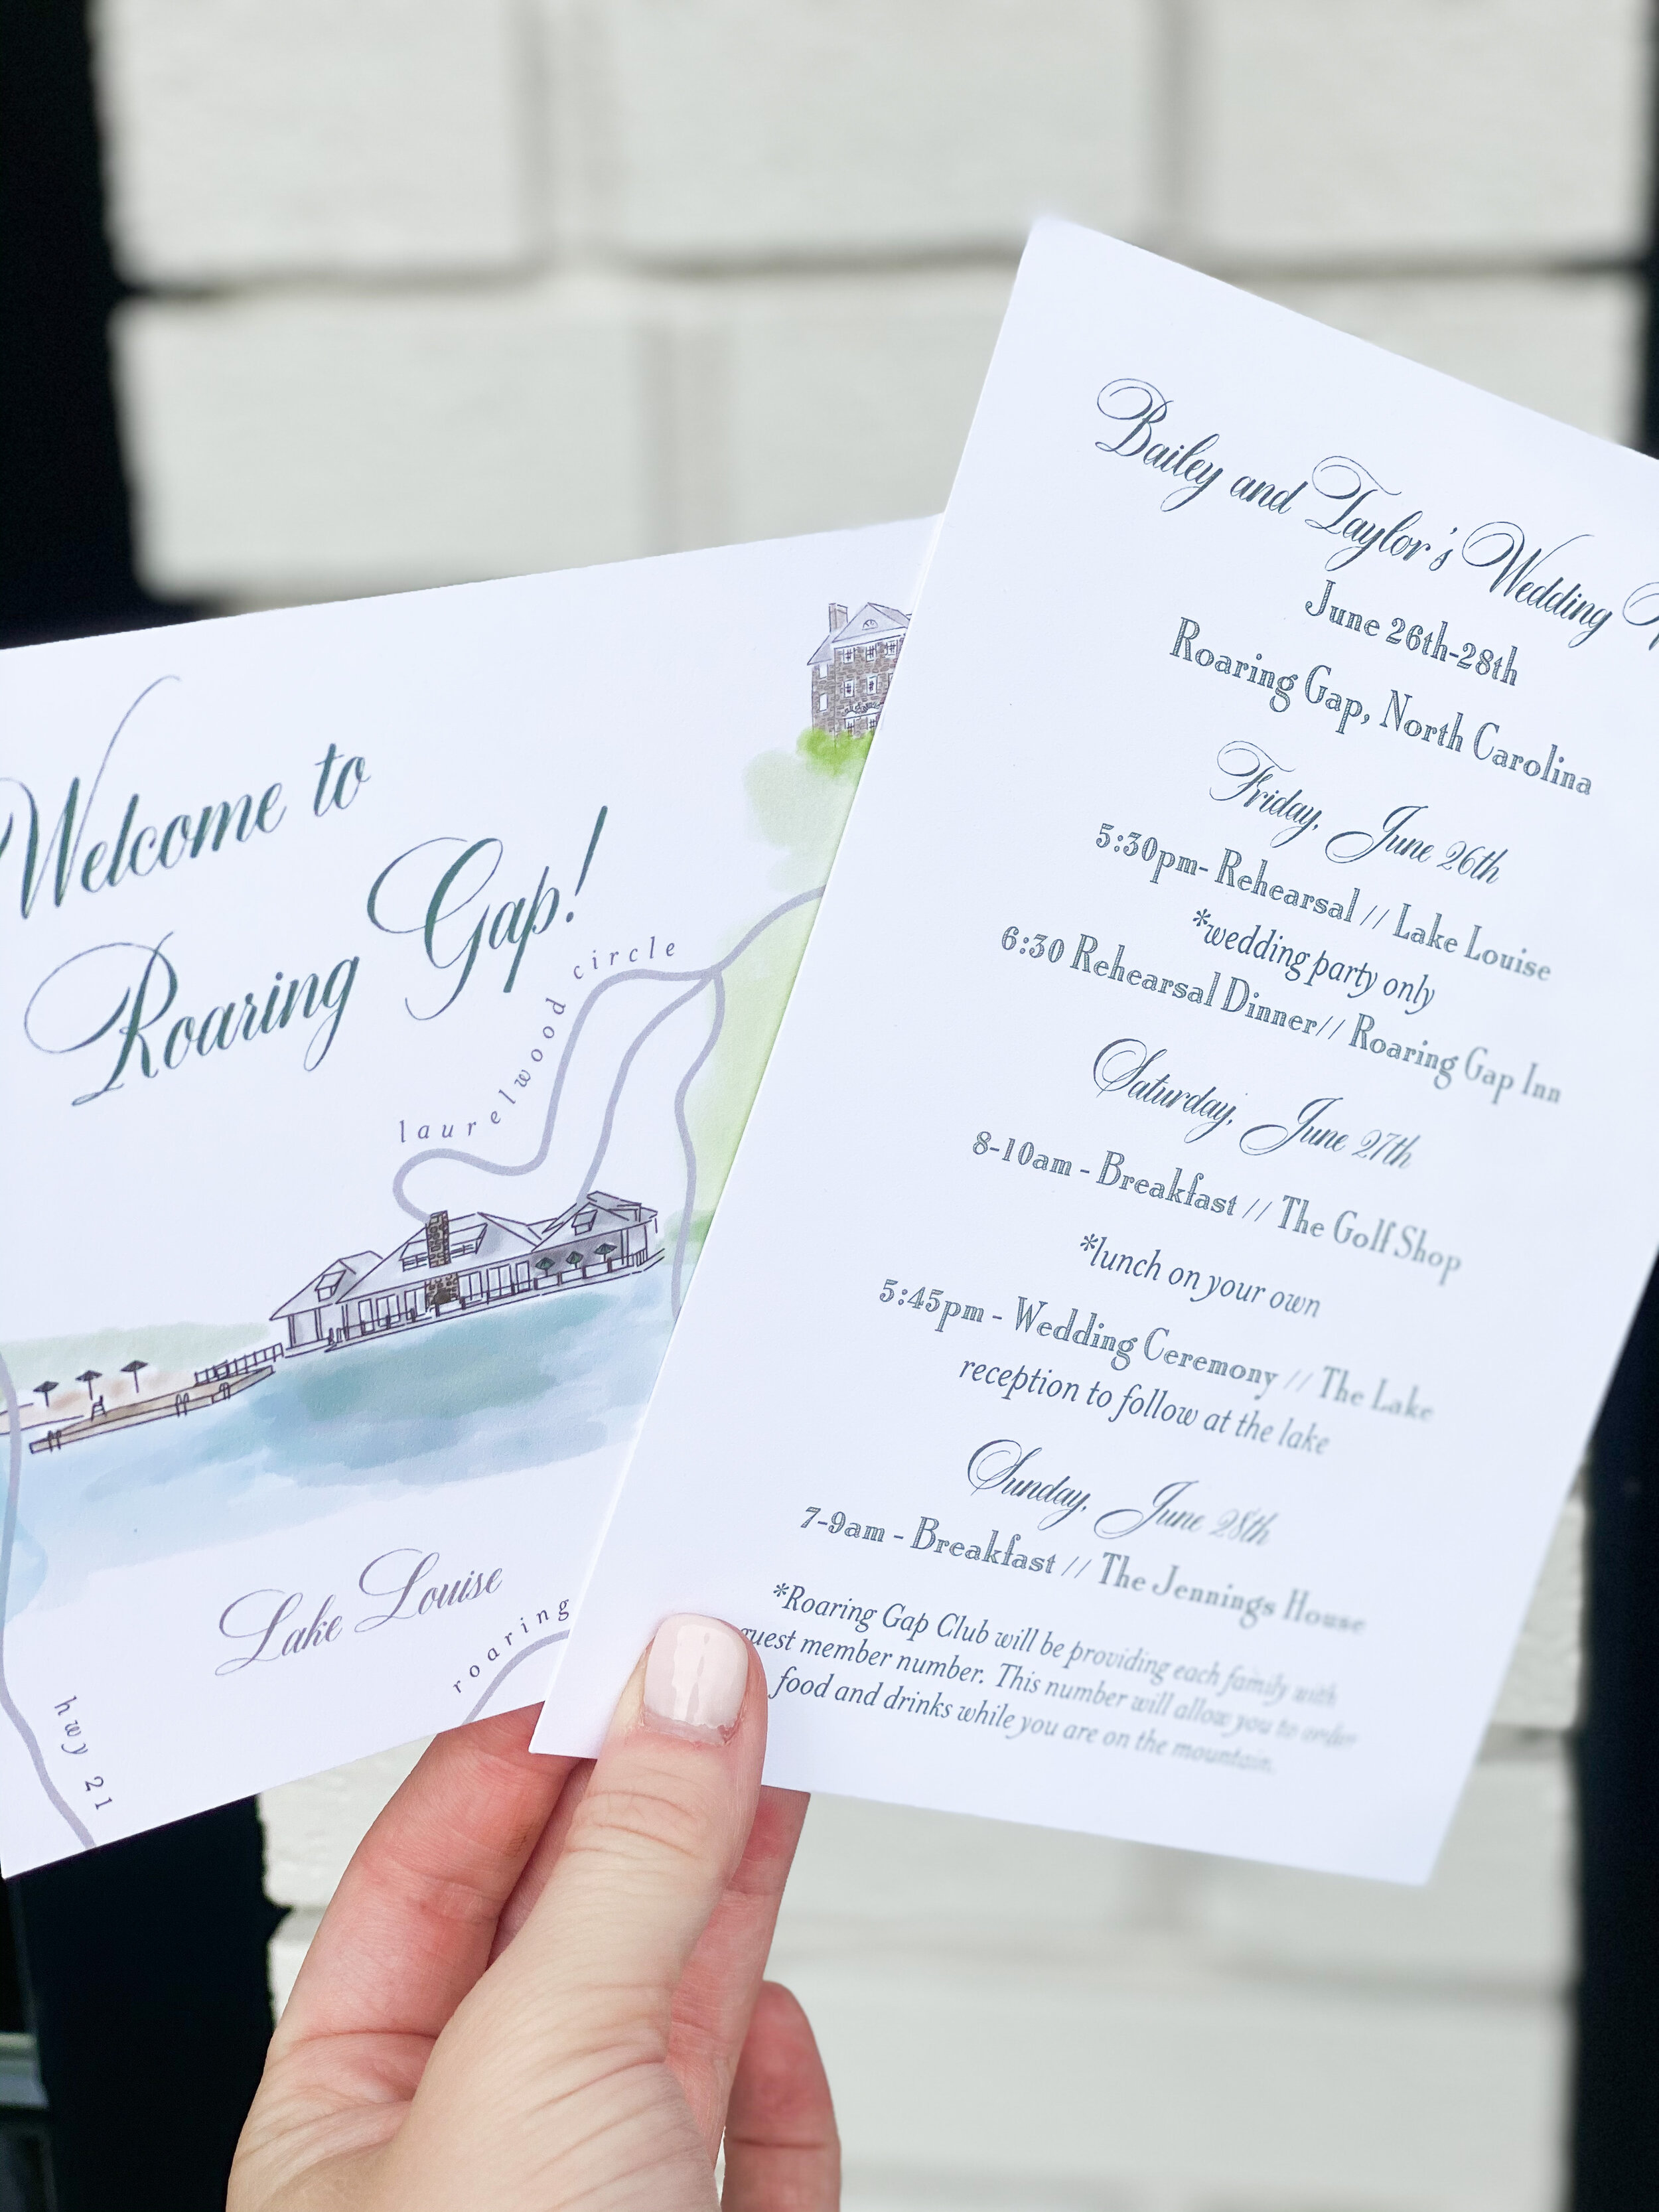 Welcome to
Roaring Gap!
laurelwood circle
Lake Louise
roaring
hwy 21
Bailey and Taylor's Wedding
June 26th-28th
Roaring Gap, North Carolina
Friday, June 26th
5:30pm- Rehearsal // Lake Louise
*wedding party only
6:30 Rehearsal Dinner// Roaring Gap Inn
Saturday, June 27th
8-10am - Breakfast // The Golf Shop
*lunch on your own
5:45pm - Wedding Ceremony // The Lake
reception to follow at the lake
Sunday, June 28th
7-9am - Breakfast // The Jennings House
*Roaring Gap Club will be providing each family with
guest member number. This number will allow you to order
food and drinks while you are on the mountain.